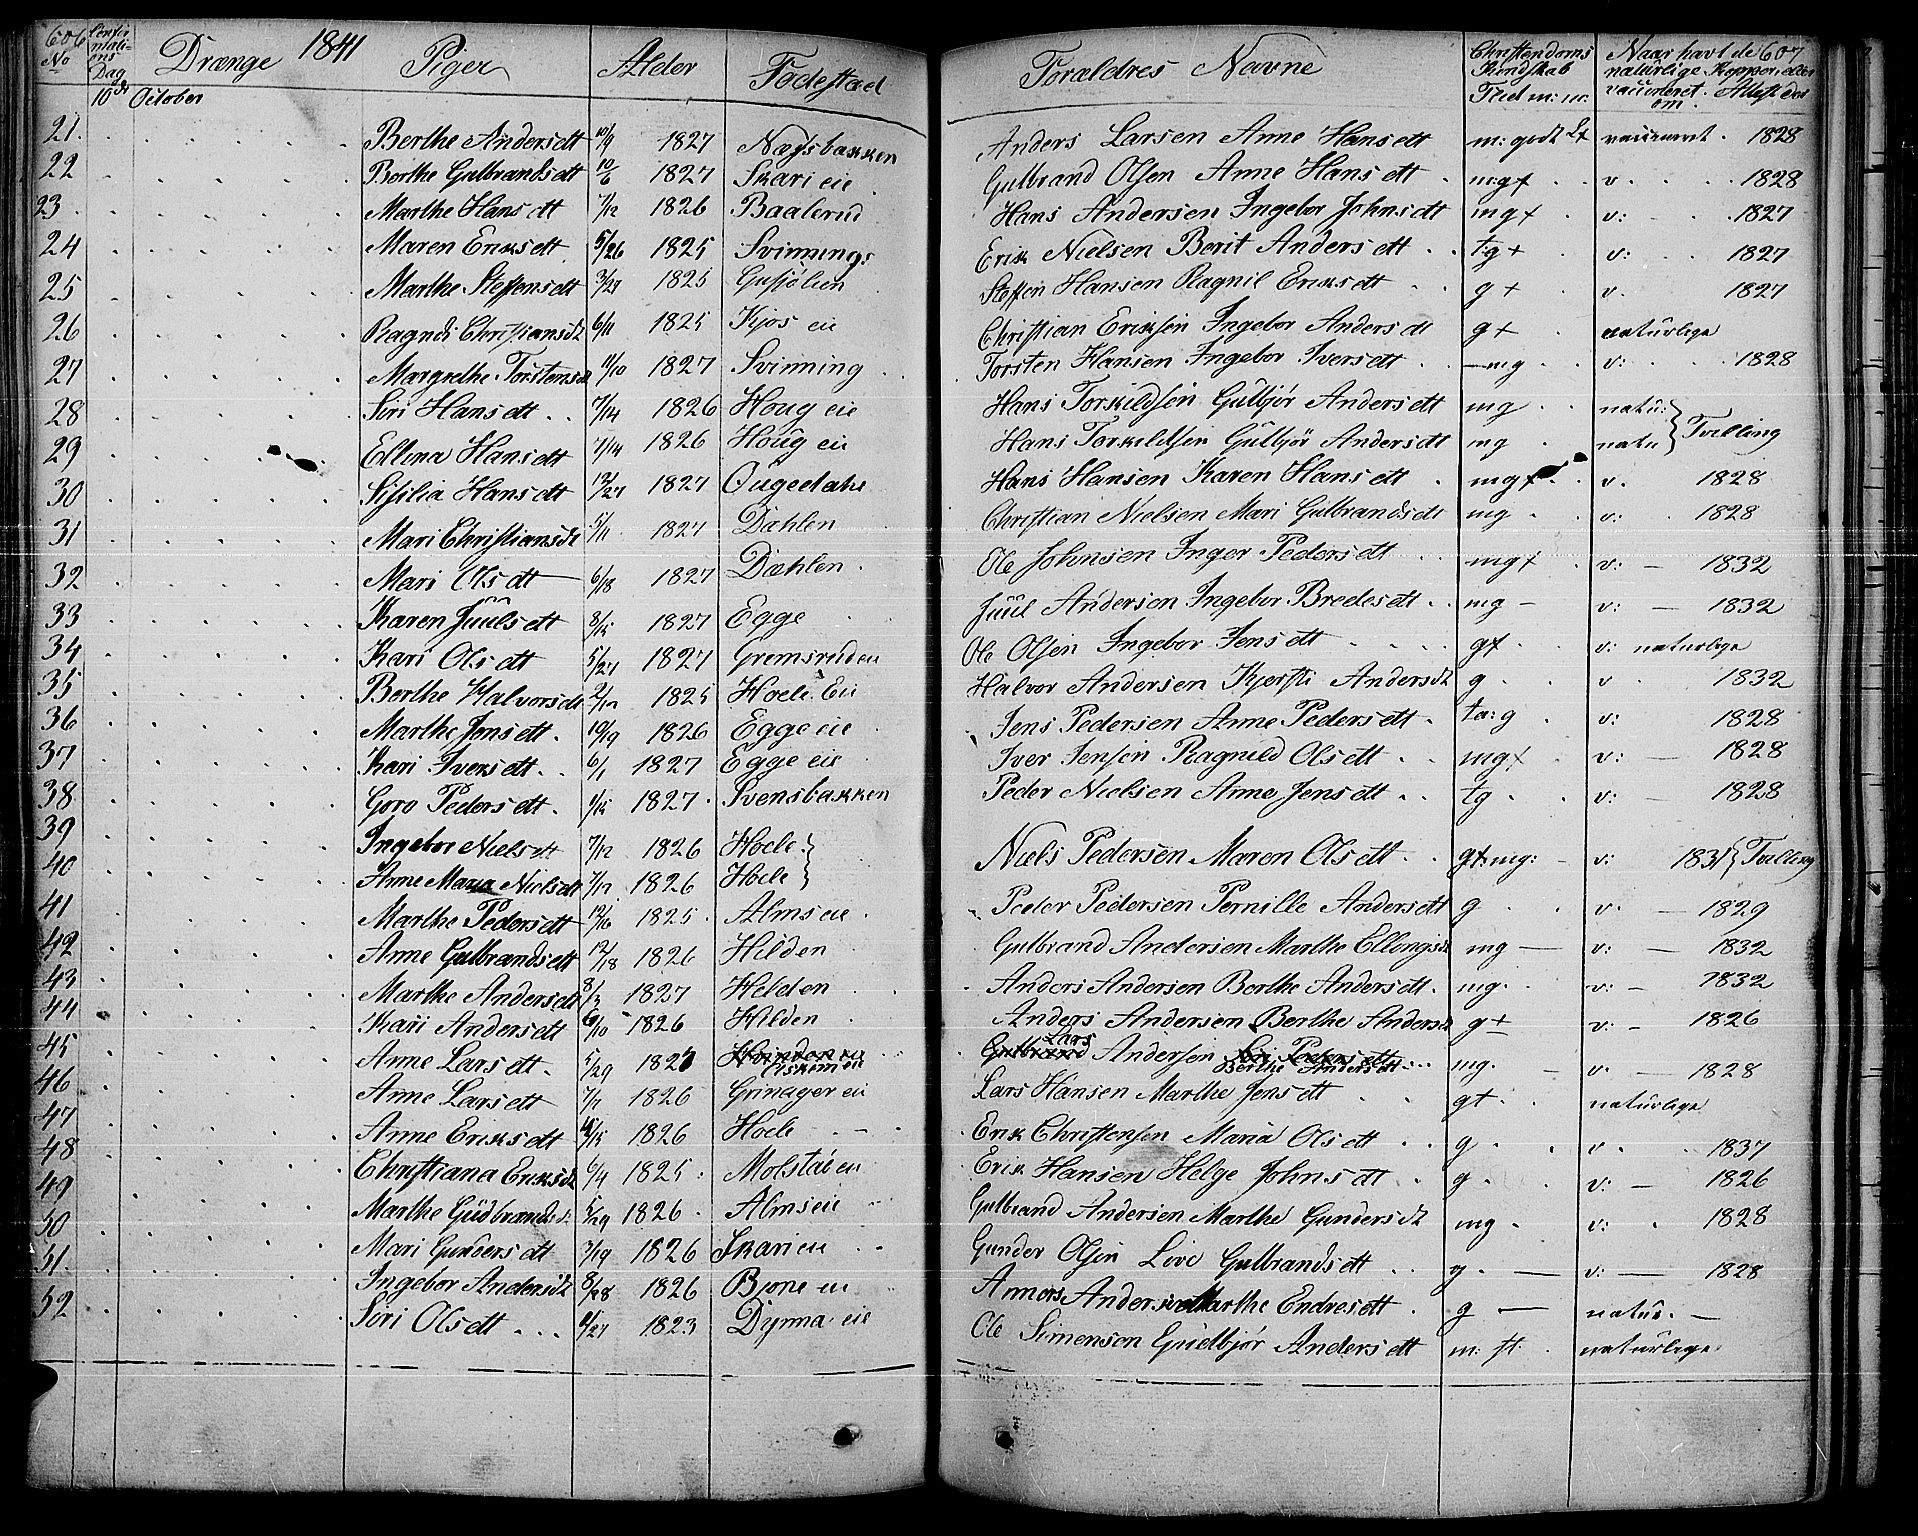 606 Confirmations Dag No Drænge 1841 Piger Alder Fødestæd Forældres Navne Christendoms Kundskab Flid m: m: Naar havt de naturlige Kopper eller vaccineret om Attest des 607
10de October
21. Berthe Andersdt 10/9 1827 Nagsbakken Anders Larsen Anne Hansdt m: godt vaccinert 1828
22 Berthe Gulbrandsdt 10/6 1827 Skari eie Gulbrand Olsen Anne Hansdt mg+ v. 1828
23 Marthe Hansdt 7/12 1826 Baalerud Hans Andersen Ingebor Johnsdt mg+ v: 1827
24 Maren Eriksdt 5/26 1825 Svinnings Erik Nielsen Berit Andersdt tg+ v: 1827
25 Marthe Steffensdt 3/29 1825 Gusjølien Steffen Hansen Ragnil Eriksdt g+ v. 1827
26 Ragndi Christiansdt 6/11 1825 Kjos eie Christian Eriksen Ingebor Andersdt g+ naturlege
27 Margrethe Torstensdt 11/10 1827 Svinning Torsten Hansen Ingebor Iversdt mg v: 1828
28 Siri Hansdt 7/14 1826 Houg eie Hans Torkildsen Gulbjør Andersdt mg natu:
29 Ellina Hansdt 7/14 1826 Houg eie Hans Torkildsen Gulbjør Andersdt mg natu Tvilling
30 Sisilia Hansdt 12/27 1827 Hans Hansen Karen Hansdt mg+ v. 1828
31 Mari Christiansdt 5/11 1827 Dæhlen Christian Nielsen Mari Gulbrandsdt mg v: 1828
32 Mari Olsdt 6/18 1827 Dæhlen Ole Johnsen Inger Pedersdt mg+ v: 1832
33 Karen Juulsdt 8/15 1827 Egge Juul Andersen Ingebor Bredesdt mg v: 1832
34 Kari Olsdt 5/27 1827 Gremsruden Ole Olsen Ingebor Jensdt g+ v: naturlege
35 Berthe Halvorsdt 2/12 1825 Hoele Eie Halvor Andersen Kjersti Andersdt g v 1832
36 Marthe Jensdt 10/19 1826 Egge eie Jens Pedersen Anne Pedersdt ta: g v: 1828
37 Kari Iversdt 6/1 1827 Egge eie Iver Jensen Ragnild Olsdt mg+ v: 1828
38 Goro Pedersdt 1/15 1827 Svensbakken Peder Nielsen Anne Jensdt tg v: 1828
39 Ingebor Nielsdt 7/12 1826 Hoele Niels Pedersen Maren Olsdt g+ mg: v: 1831 Tvilling
40 Anne Maria Nielsdt 7/12 1826 Hoele
41 Marthe Pedersdt 12/16 1825 Alms eie Peder Pedersen Pernille Andersdt g v: 1829
42 Anne Gulbrandsdt 12/18 1826 Hilden Gulbrand Andersen Marthe Ellingsdt mg v: 1832
43 Marthe Andersdt 8/3 1827 Helden Anders Andersen Berthe Andersdt mg v: 1832
44 Kari Andersdt 6/10 1826 Hilden Anders Andersen Berthe Andersdt g+ v: 1826
45 Anne Larsdt 5/29 1827 Hvinden eie Gulbrand Lars Andersen Siri Pedersdt Berthe Andersdt mg v: 1828
46 Anne Larsdt 7/7 1826 Grinager eie Lars Hansen Marthe Jensdt gt naturlege
47 Anne Eriksdt 1826 Hoele Erik Christensen Maria Olsdt g v. 1837
48 Christiana Eriksdt 6/4 1825 Molstad en Erik Hansen Helge Johnsdt g v: 1826
49 Marthe Gudbrandsdt 5/29 1826 Alms eie Gulbrand Andersen Marthe Gundersdt mg v: 1828
50 Mari Gundersdt 3/19 1826 Skari eie Gunder Olsen Live Gulbrandsdt g v: 1828
51. Ingebor Andersdt 8/28 1826 Bjone eie Andersen Marthe Endresdt g natur.
52 Siri Olsdt 2/27 1823 Dynna eie Ole Simensen Gudbjør Andersdt m: ft: naturlege